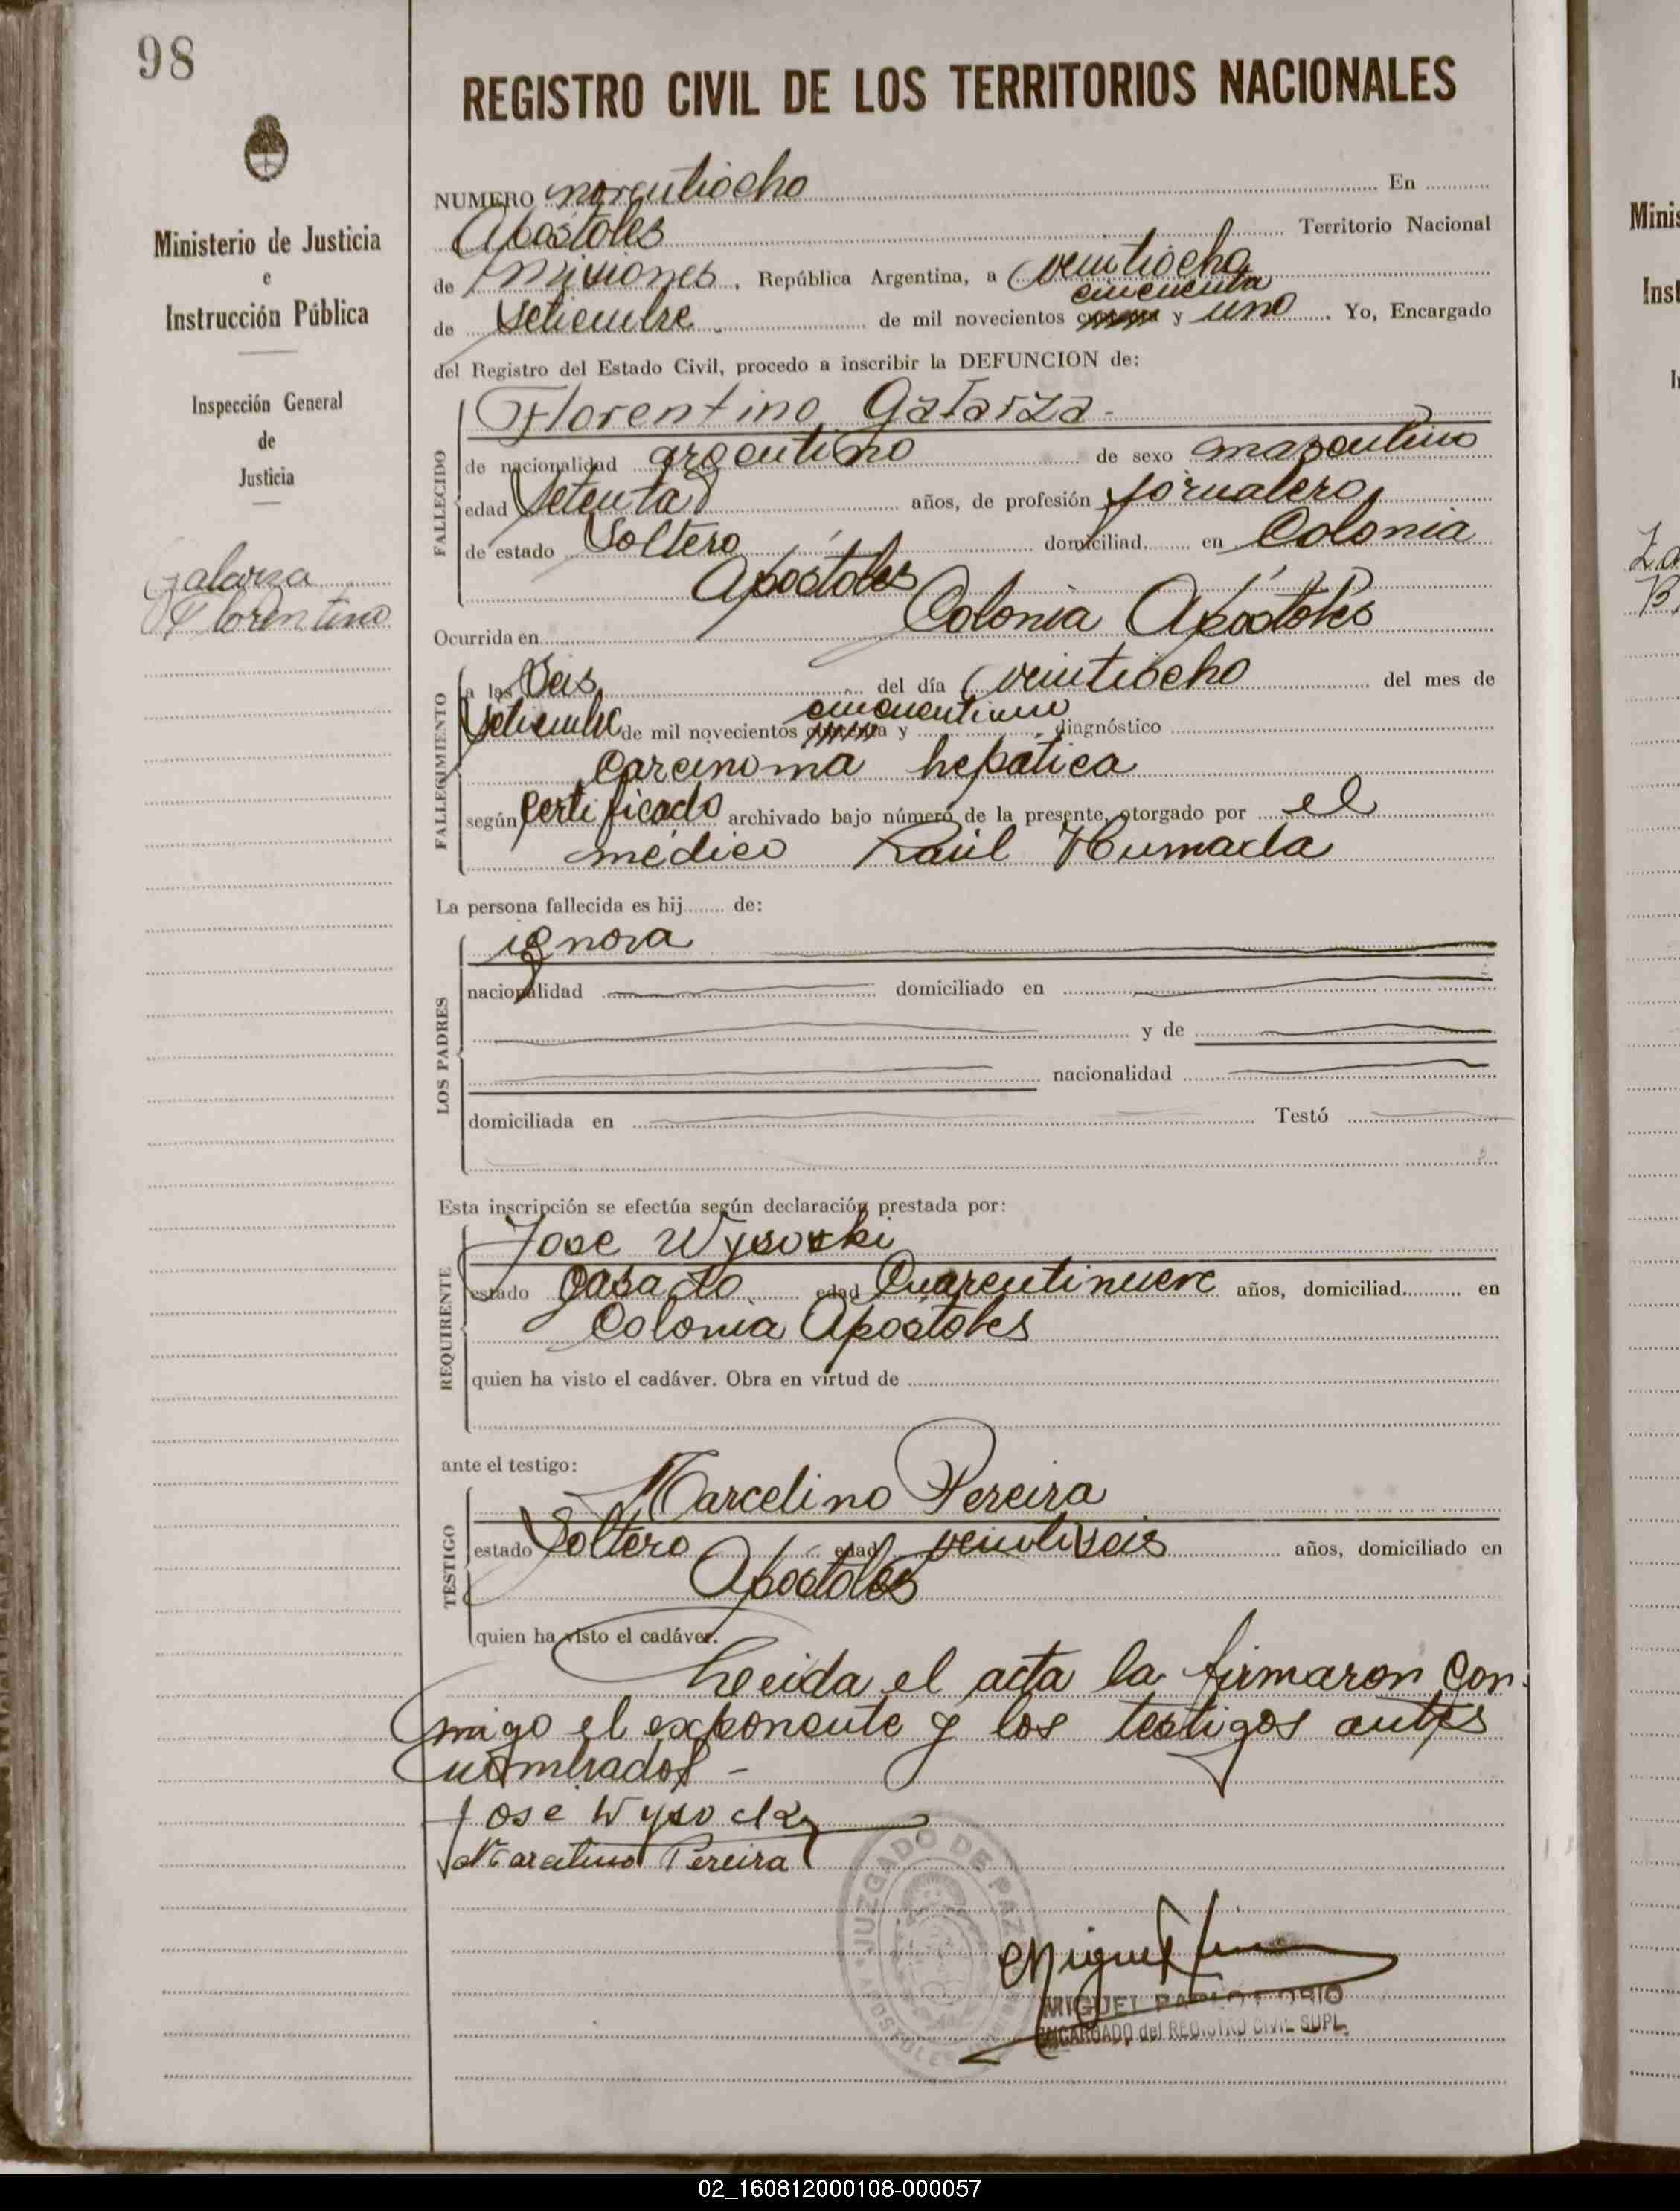 98
REGISTRO CIVIL DE LOS TERRITORIOS NACIONALES
Ministerio de Justicia
e
Instrucción Pública
Inspección General
de
Justicia
Galarza
Florentino
NUMERO noventiocho En
Apóstoles Territorio Nacional
de Misiones, República Argentina, a veintiocho
cincuenta
de Setiembre de mil novecientos y uno. Yo, Encargado
del Registro del Estado Civil, procedo a inscribir la DEFUNCION de:
FALLECIDO
Florentino Galarza-
de nacionalidad argentino de sexo masculino
edad Setenta años, de profesión jornalero
de estado Soltero domiciliad en Colonia
Apóstoles
Ocurrida en Colonia Apóstoles
FALLECIMIENTO
a las Seis del día veintiocho del mes de
cincuentiuno
Setiembre de mil novecientos y diagnóstico
Carcinoma hepática
según certificado archivado bajo número de la presente, otorgado por el
médico Raúl Humada
La persona fallecida es hij de:
LOS PADRES
ignora
nacionalidad domiciliado en
y de
nacionalidad
domiciliada en Testó
Esta inscripción se efectúa según declaración prestada por:
REQUIRENTE
Jose Wysocki
estado Casado edad Cuarentinueve años, domiciliad en
Colonia Apóstoles
quien ha visto el cadáver. Obra en virtud de
ante el testigo:
TESTIGO
Marcelino Pereira
estado Soltero edad veintiseis años, domiciliado en
Apóstoles
quien ha visto el cadáver.
Leida el acta la firmaron con
migo el exponente y los testigos antes
nombrados -
Jose Wysocky
Marcelino Pereira
JUZGADO DE PAZ
APOSTOLES
Miguel
MIGUEL
ENCARGADO del REGISTRO CIVIL SUPL.
Minis
Inst
02_160812000108-000057